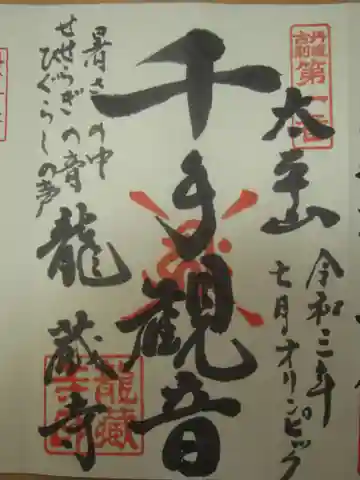 丹波
古刹
第一番
太平山
令和三年
七月オリンピック
千手観音
暑さの中
せせらぎの音
ひぐらしの声
龍蔵寺
龍蔵
寺印